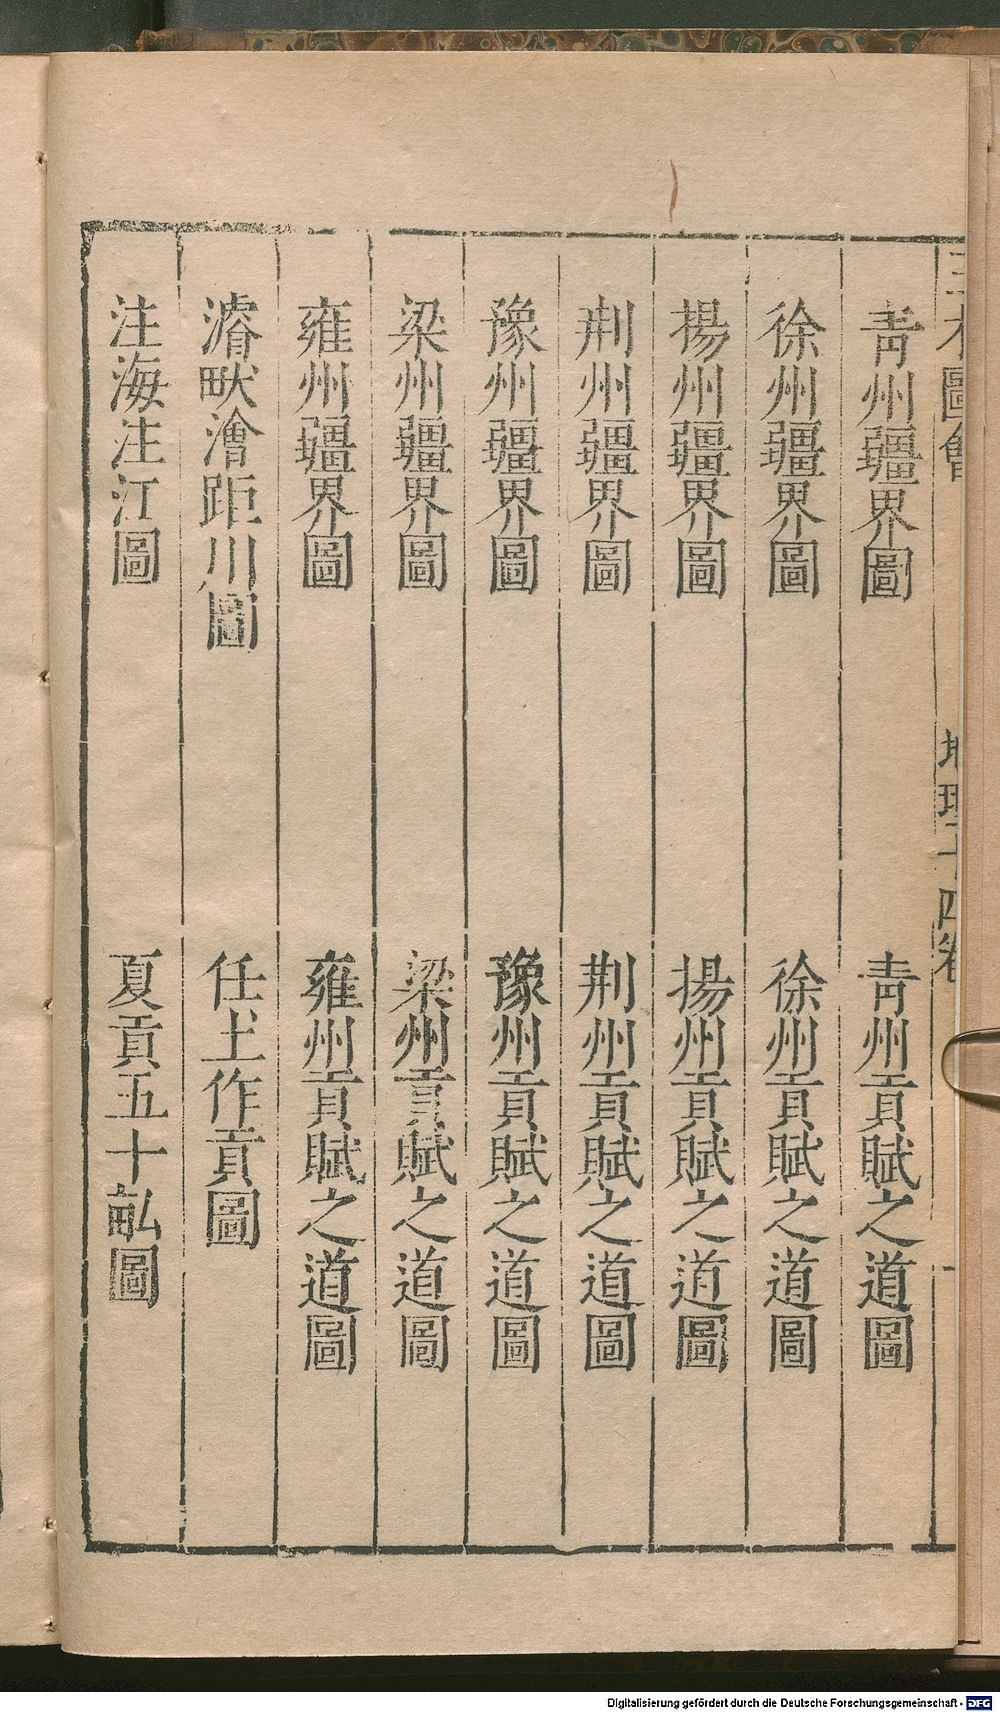 三才圖會 地理十四卷 一
青州疆界圖 青州貢賦之道圖
徐州疆界圖 徐州貢賦之道圖
揚州疆界圖 揚州貢賦之道圖
荆州疆界圖 荆州貢賦之道圖
豫州疆界圖 豫州貢賦之道圖
梁州疆界圖 梁州貢賦之道圖
雍州疆界圖 雍州貢賦之道圖
濬畎澮距川圖 任土作貢圖
注海注江圖 夏貢五十畝圖
Digitalisierung gefördert durch die Deutsche Forschungsgemeinschaft - DFG